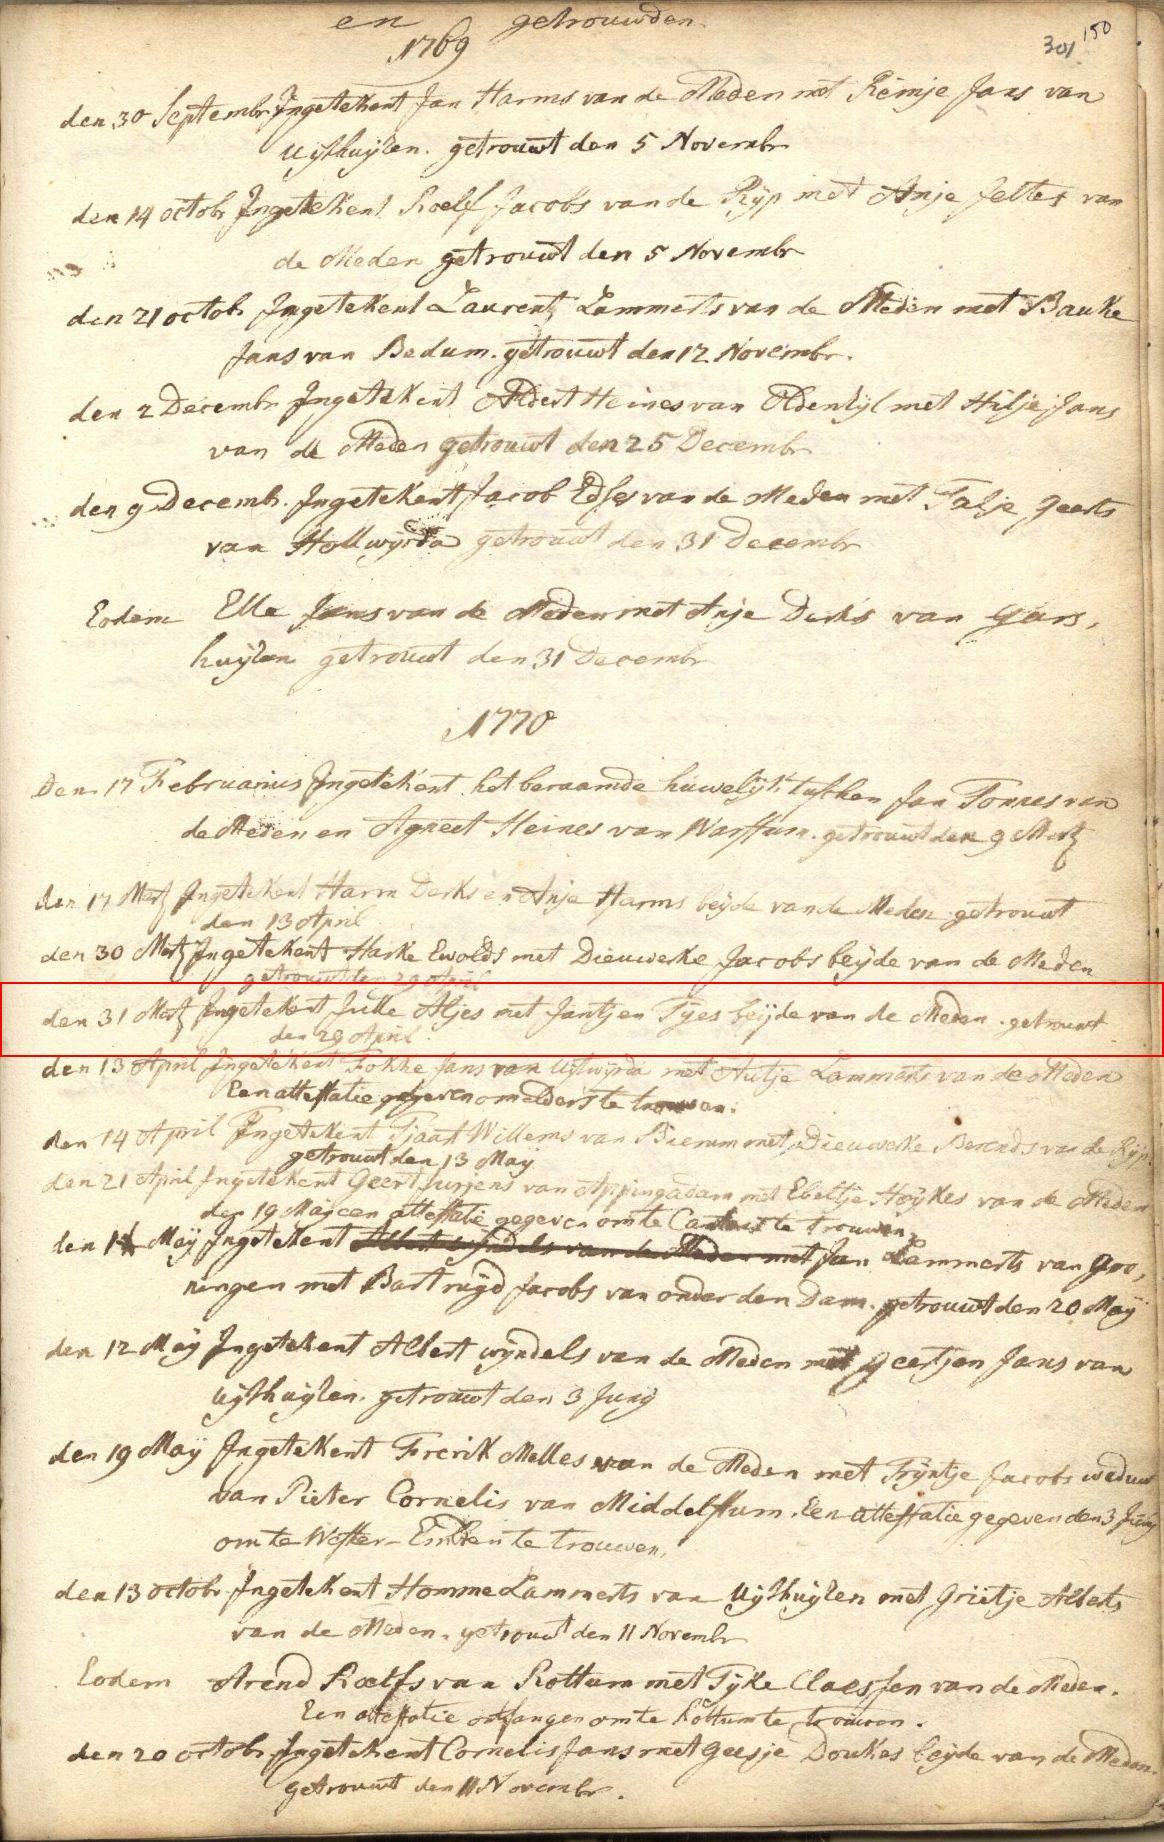 en getrouwden.
1769
301 150
den 30 Septembr Ingetekent Jan Harms van de Meden met Reinje Jans van
Uijthuijzen. getrouwt den 5 Novembr
den 14 octobr Ingetekent Roelf Jacobs van de Rijp met Anje Feltes van
de Meden getrouwt den 5 Novembr
den 21 octobr Ingetekent Laurentz Lammerts van de Meden met Bauke
Jans van Bedum. getrouwt den 12 Novembr.
den 2 Decembr Ingetekent Aldert Heines van Oldenzijl met Hilje Jans
van de Meden getrouwt den 25 Decembr
den 9 Decemb. Ingetekent Jacob Edses van de Meden met Talje geerts
van Hollwijrda getrouwt den 31 Decembr
Eodem Elle Jans van de Meden met Anje Derks van gars,
huijzen getrouwt den 31 Decembr
1770
Den 17 Februarius Ingetekent het beraamde huwelijk tusschen Jan Tonnes van
de Meden en Agneet Heines van Warffum. getrouwt den 9 Mertz
den 17 Mertz Ingetekent Harm Derks en Anje Harms beijde van de Meden getrouwt
den 13 April
den 30 Mertz Ingetekent Harke Ewolds met Dieuwerke Jacobs beijde van de Meden
getrouwt den 29 April
den 31 Mertz Ingetekent Juke Aljes met Jantjen Tijes beijde van de Meden. getrouwt
den 29 April.
den 13 April Ingetekent Fokke Jans van Uijtwijrda met Autje Lammerts van de Meden
Een attestatie gegeven om elders te trouwen.
den 14 April Ingetekent Tjaart Willems van Bierum met Dieuwerke Berends van de Rijp.
getrouwt den 13 Maij
den 21 April Ingetekent Geert Jurjens van Appingadam met Ebeltje Hoijkes van de Meden
den 19 Maij een attestatie gegeven om te Cantens te trouwen.
den 11 Maij Ingetekent Albert wijndels van de Meden met Jan Lammerts van gro,
ningen met Bartruijd Jacobs van onder den Dam. getrouwt den 20 Maij
den 12 Maij Ingetekent Albert wijndels van de Meden met geertjen Jans van
Uijthuijzen. getrouwt den 3 Junij
den 19 Maij Ingetekent Frerik Melles van de Meden met Trijntje Jacobs weduw
van Pieter Cornelis van Middelstum. Een attestatie gegeven den 3 Junij
om te Wester-Emden te trouwen.
den 13 octobr Ingetekent Homme Lammerts van Uijthuijzen met Grietje Alberts
van de Meden. getrouwt den 11 Novembr
Eodem Arend Roelfs van Rottum met Tijke Claessen van de Meden.
Een attestatie ontfangen om te Rottum te trouwen.
den 20 octobr Ingetekent Cornelis Jans met Geesje Doukes beijde van de Meden.
getrouwt den 11 Novembr.